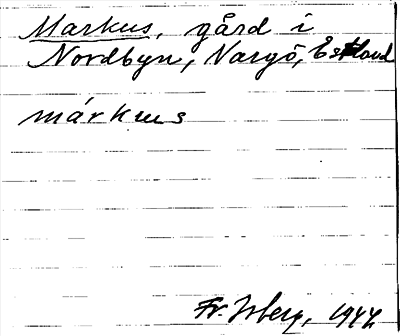 Markus, gård i
Nordbyn, Nargö, Estland
márkus
Fr. Isberg, 1944